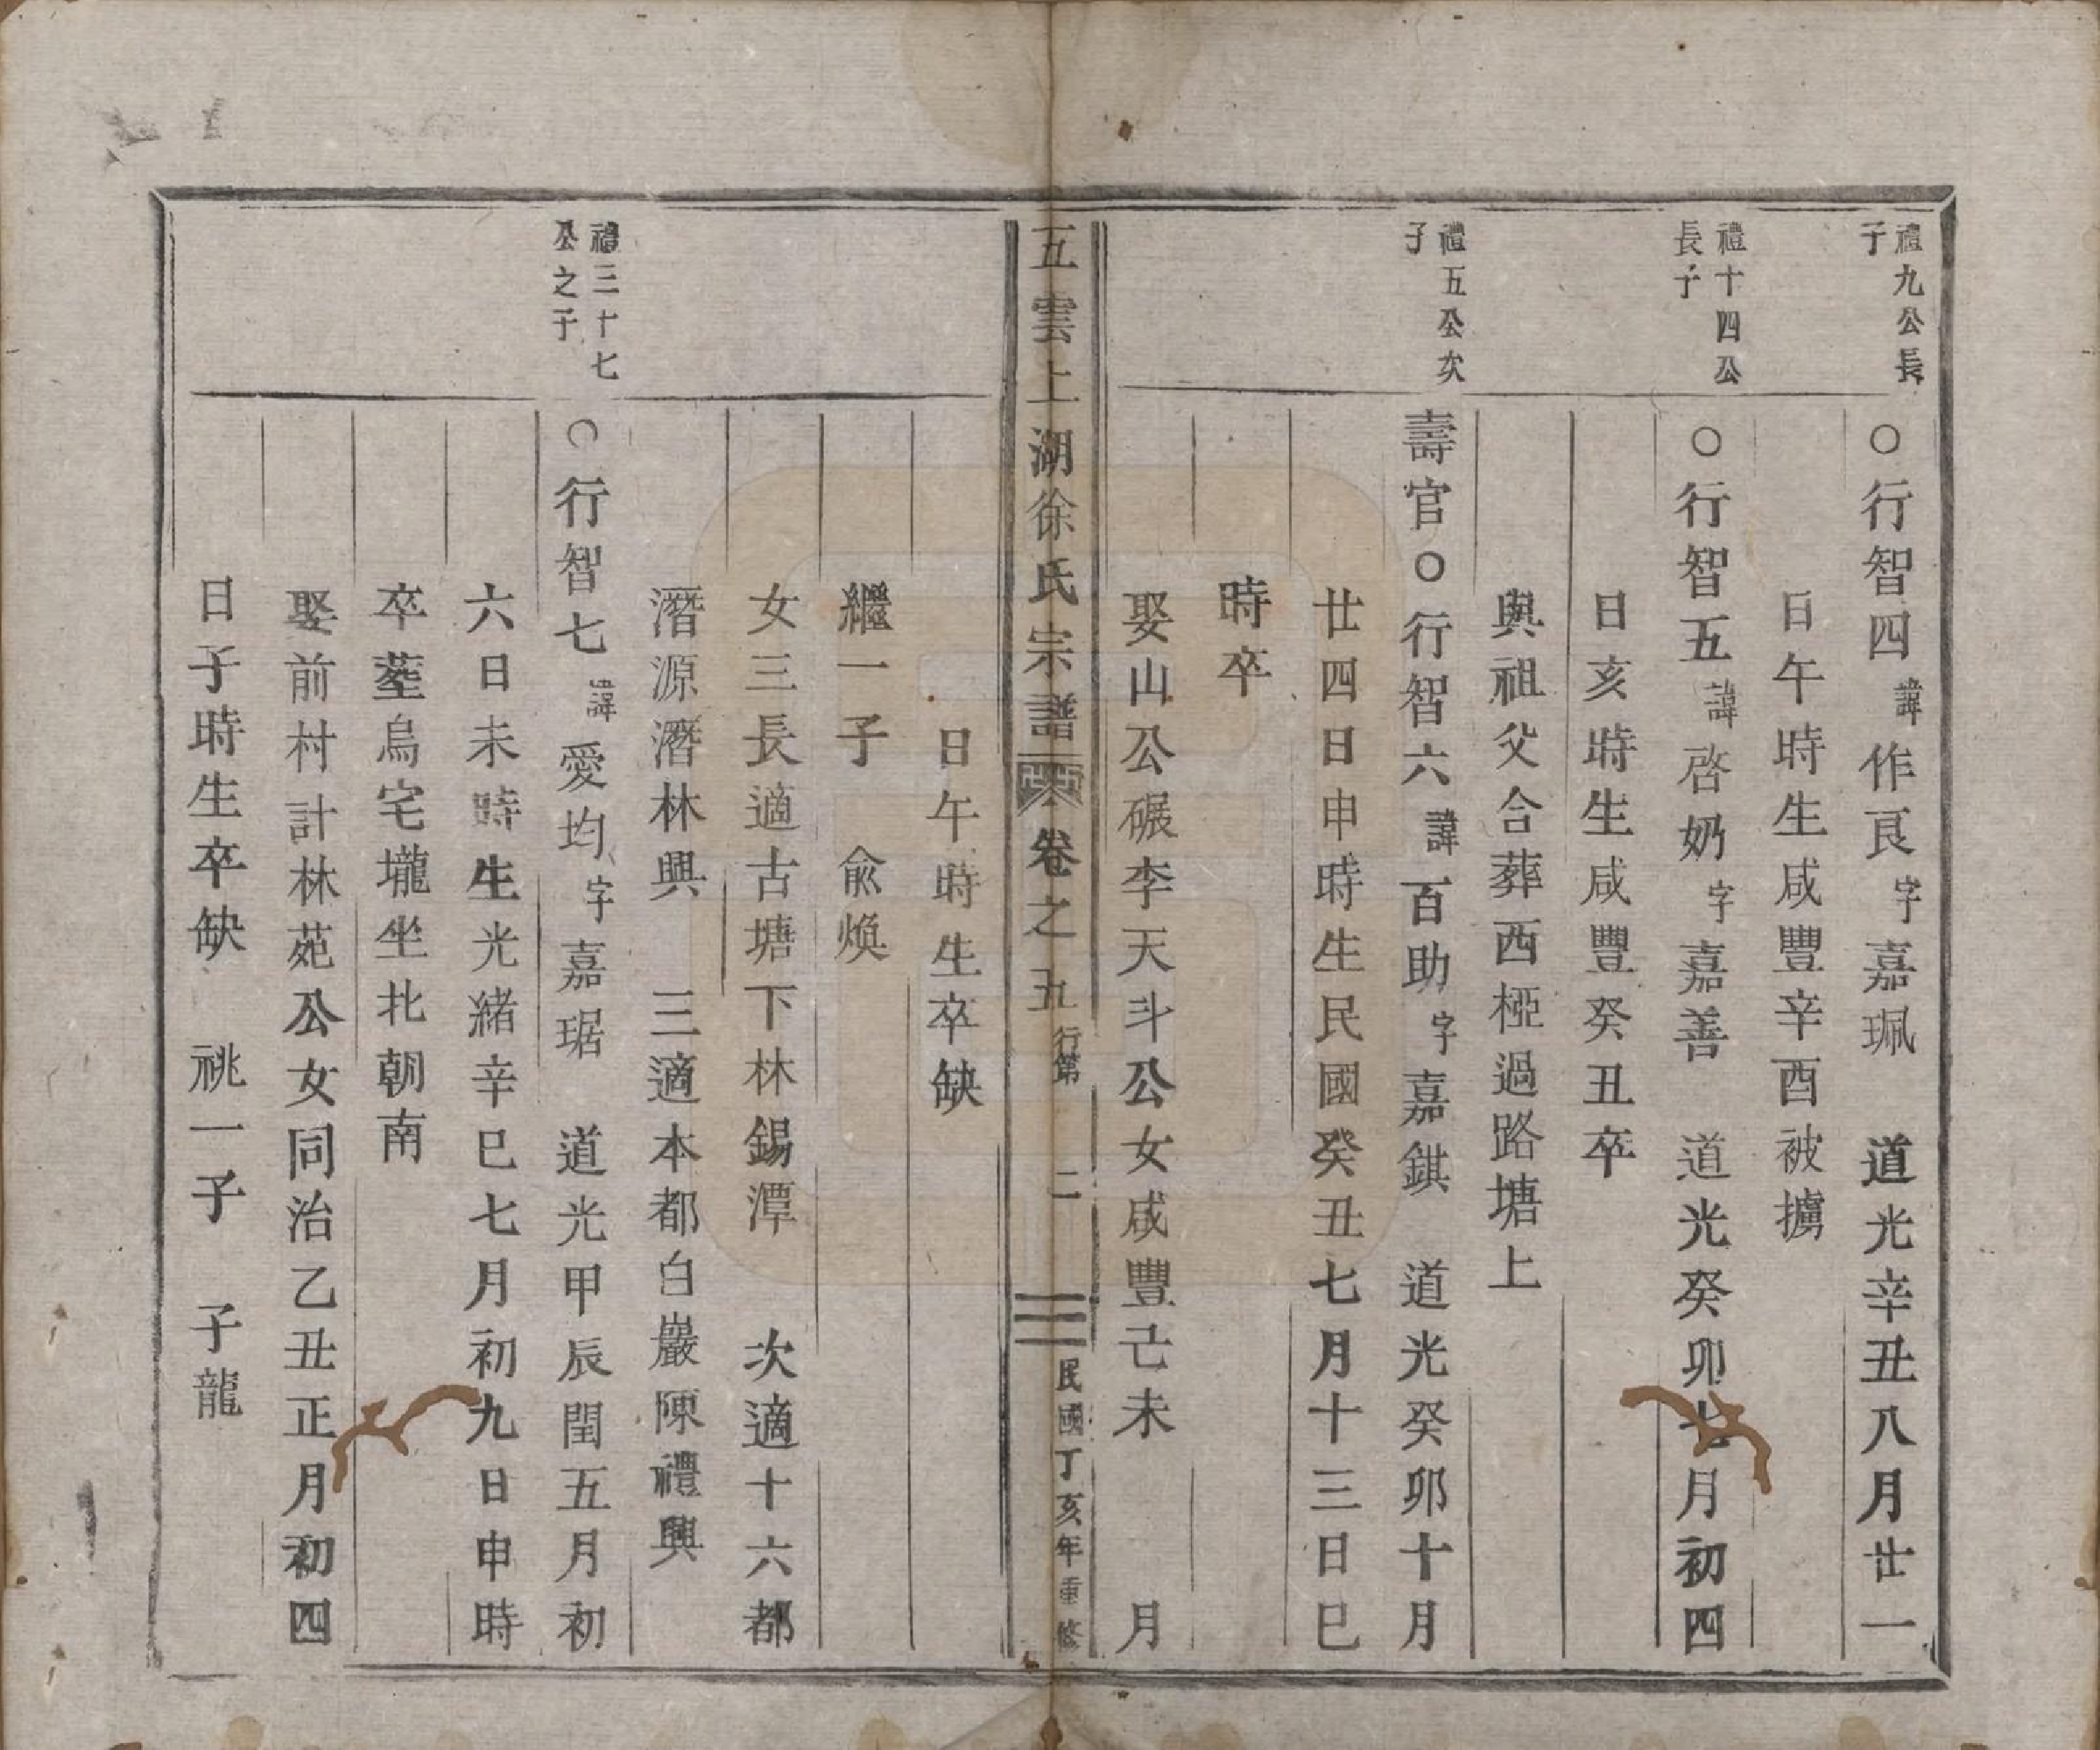 禮九公長
子
○行智四諱作良字嘉珮　道光辛丑八月廿一
日午時生咸豐辛酉被擄
禮十四公
長子
○行智五諱啓奶字嘉善　道光癸卯七月初四
日亥時生咸豐癸丑卒
與祖父合葬西極過路塘上
禮五公次
子
壽官○行智六諱百助字嘉錤　道光癸卯十月
廿四日申時生民國癸丑七月十三日巳
時卒
娶山公碾李天斗公女咸豐己未　　月
五雲上湖徐氏宗譜　卷之五　行第　二　民國丁亥年重修
日午時生卒缺
繼一子　俞煥
女三長適古塘下林錫潭　次適十六都
潛源潛林興　三適本都白巖陳禮興
禮三十七
公之子
○行智七諱愛均字嘉琚　道光甲辰閏五月初
六日未時生光緒辛巳七月初九日申時
卒塟烏宅壠坐北朝南
娶前村計林苑公女同治乙丑正月初四
日子時生卒缺　祧一子　子龍